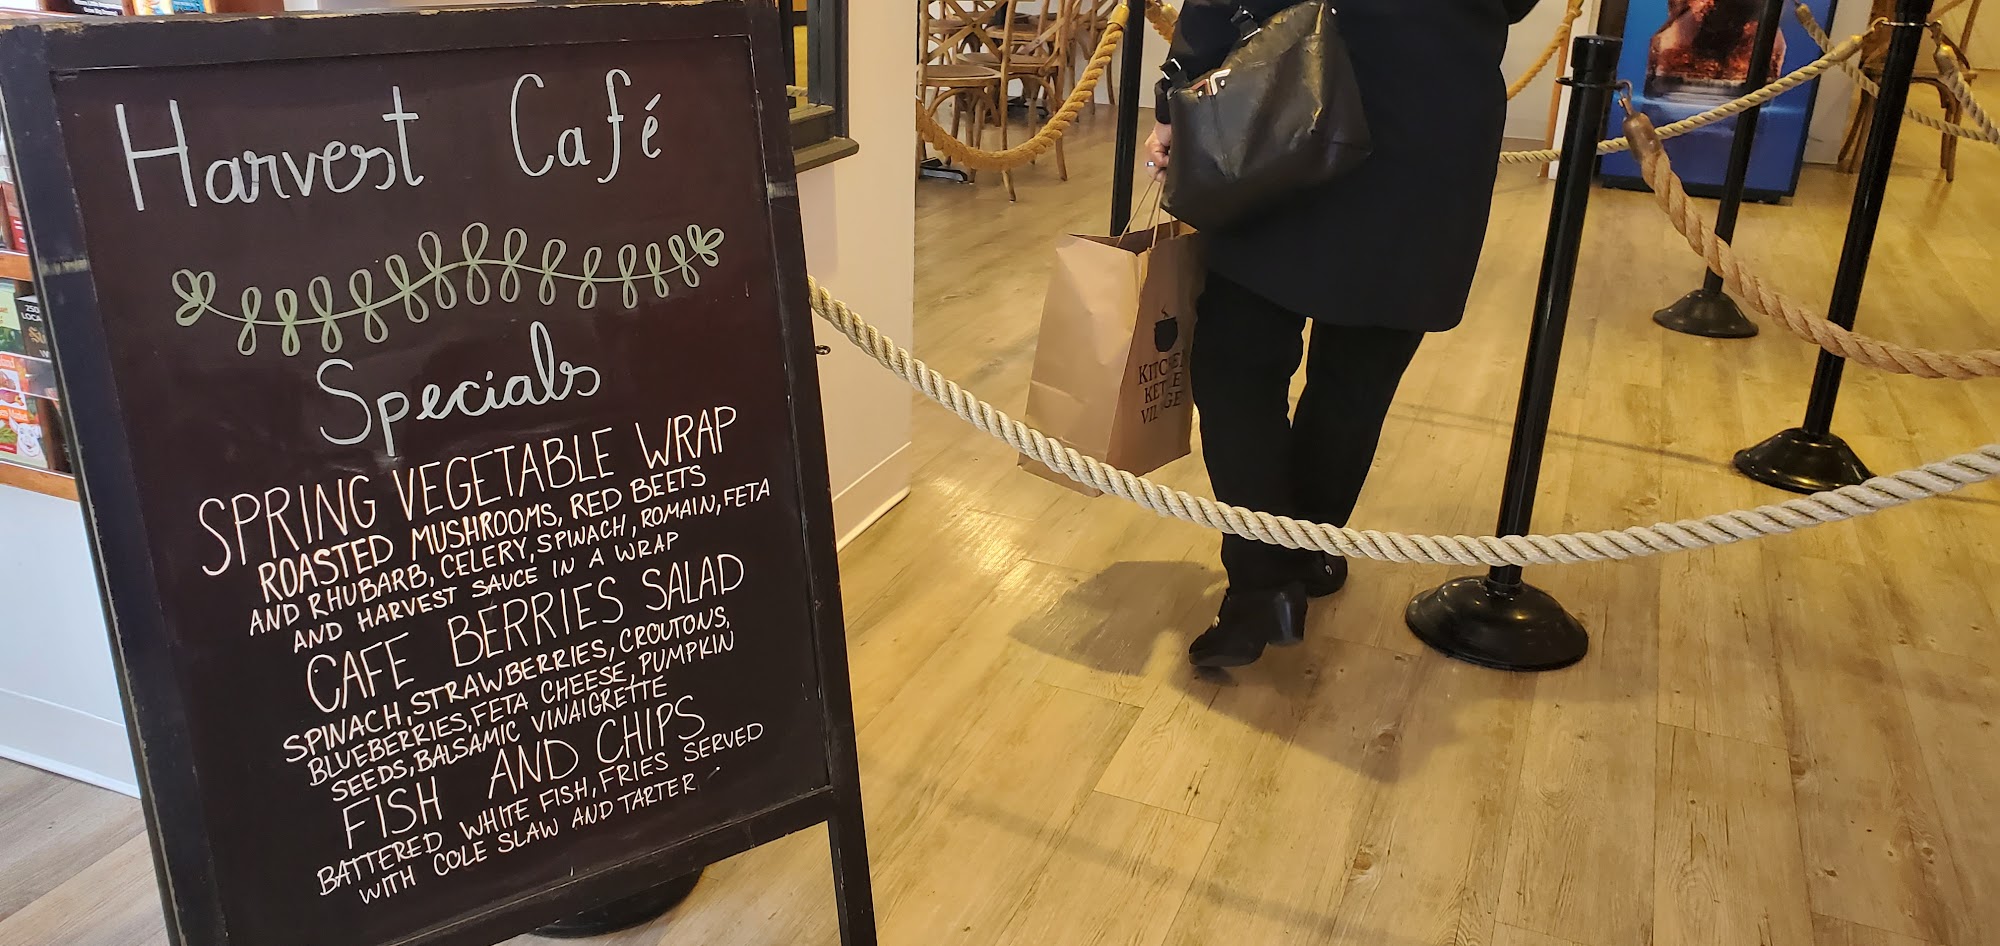 Harvest Café
Specials
SPRING VEGETABLE WRAP
ROASTED MUSHROOMS, RED BEETS
AND RHUBARB, CELERY, SPINACH, ROMAIN, FETA
AND HARVEST SAUCE IN A WRAP
CAFE BERRIES SALAD
SPINACH, STRAWBERRIES, CROUTONS,
BLUEBERRIES, FETA CHEESE, PUMPKIN
SEEDS, BALSAMIC VINAIGRETTE
FISH AND CHIPS
BATTERED WHITE FISH, FRIES SERVED
WITH COLE SLAW AND TARTER
KITCHEN
KETTLE
VILLAGE